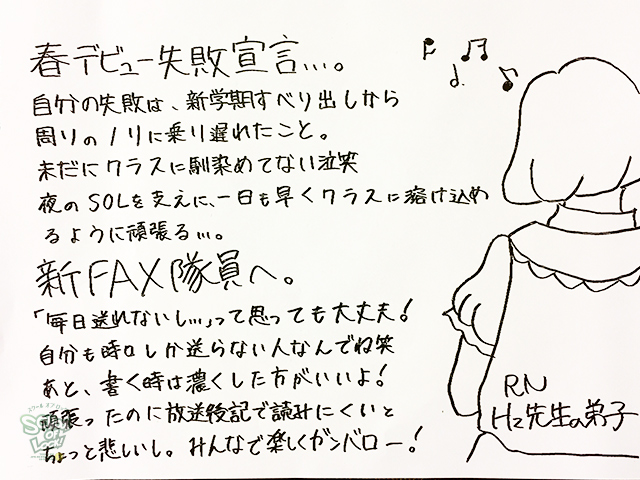 春デビュー失敗宣言…。
自分の失敗は、新学期すべり出しから
周りのノリに乗り遅れたこと。
未だにクラスに馴染めてない泣笑
夜のSOLを支えに、一日も早くクラスに溶け込め
るように頑張る…。
新FAX隊員へ。
「毎日送れないし…」って思っても大丈夫！
自分も時々しか送らない人なんでね笑
あと、書く時は濃くした方がいいよ！
頑張ったのに放送後記で読みにくいと
ちょっと悲しいし。みんなで楽しくガンバロー！
RN
Hz先生の弟子
SCHOOL OF LOCK!